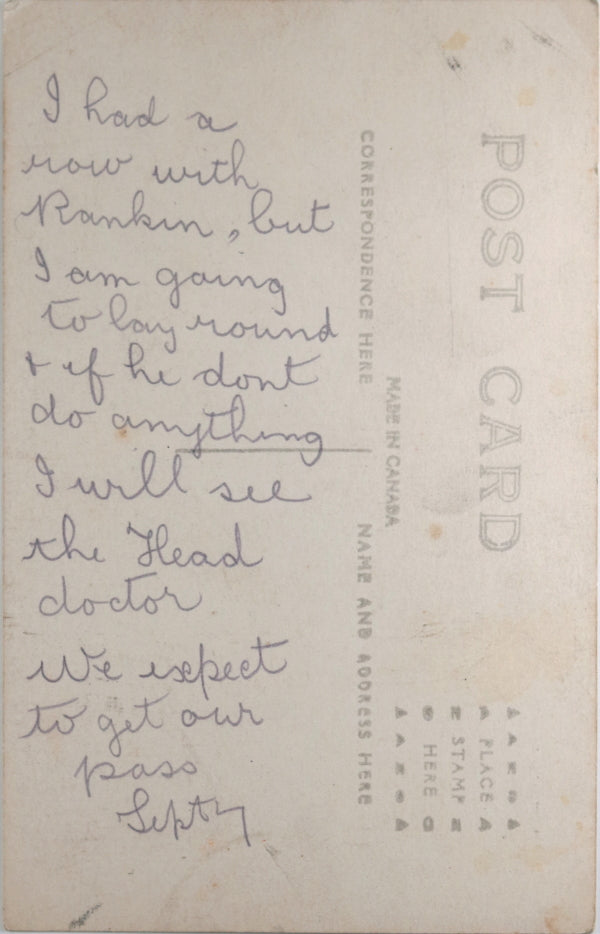 I had a
row with
Rankin, but
I am going
to lay round
& if he dont
do anything
I will see
the Head
doctor.
We expect
to get our
pass
Sept 7
POST CARD
CORRESPONDENCE HERE
MADE IN CANADA
NAME AND ADDRESS HERE
PLACE
STAMP
HERE